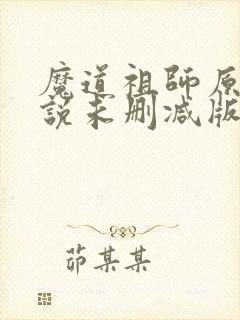 魔道祖師原
說未删减版
茆某某